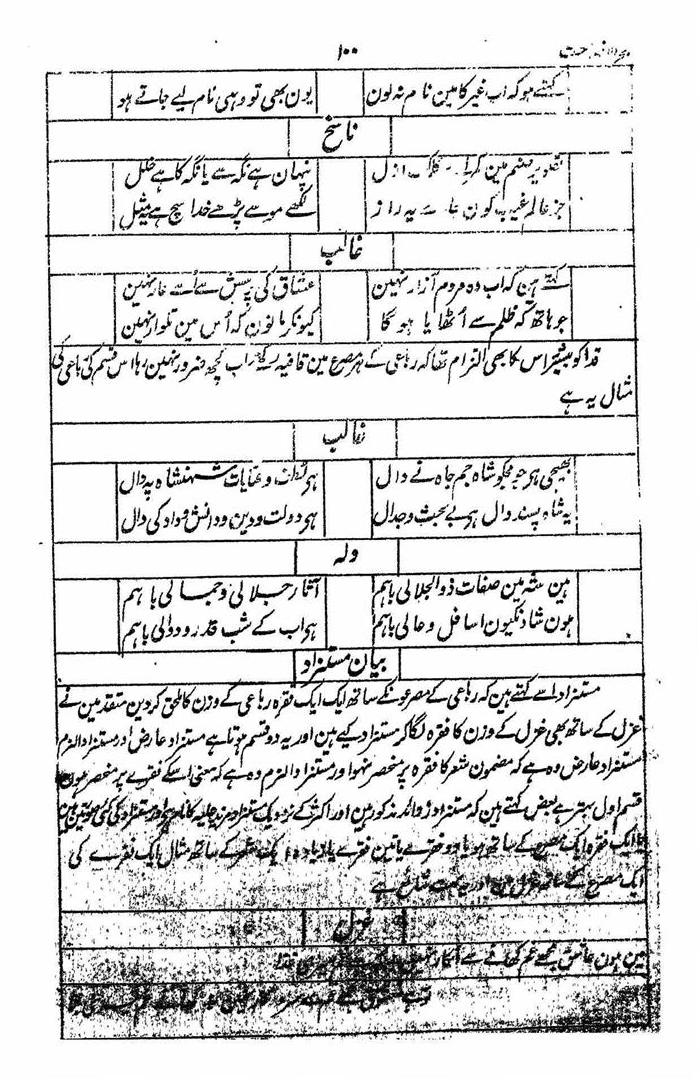 ۱۰۰
کہتے ہو کہ اب غیر کا مین نام نہ لون یون بھی تو وہی نام لیے جاتے ہو
ناسخ
تصویر صنم مین ازل پنہان ہے نگہ سے یا نگہ کا ہے خلل
جز عالم غیب کون یہ راز لکھے موسے پڑھے خدا سچ ہے مثل
غالب
کہتے ہین کہ اب وہ مردم آزار نہین عشاق کی پرسش سے اُسے عار نہین
جو ہاتھ کہ ظلم سے اُٹھایا ہو گا کیونکر مانون کہ اُس مین تلوار نہین
قدما کو بیشتر اس کا بھی التزام تھا کہ رباعی کے ہر مصرع مین قافیہ اب کچھ ضرور نہین رہا اس قسم کی رباعی کی
مثال یہ ہے
غالب
بھیجی ہی جو مجکو شاہ جم جاہ نے دال ہی لطف و عنایات شہنشاہ پہ دال
یہ شاہ پسند دال ہی بے بحث و جدال ہی دولت و دین و دانش و داد کی دال
ولہ
ہین شہ مین صفات ذوالجلالی باہم آثار جلالی و جمالی باہم
ہون شاد نکیون اسافل و عالی باہم ہی اب کے شب قدر و دوالی باہم
بیان مستزاد
مستزاد اسے کہتے ہین کہ رباعی کے مصرعونکے ساتھ ایک ایک فقرہ رباعی کے وزن کا ملحق کردین متقدمین نے
غزل کے ساتھ بھی غزل کے وزن کا فقرہ لگا کر مستزاد کیے ہین اور یہ دو قسم ہوتا ہے مستزاد عارض اور مستزاد الزم
مستزاد عارض وہ ہے کہ مضمون شعر کا فقرہ پر منحصر نہو اور مستزاد الزم وہ ہے کہ معنی اسکے فقرے پر منحصر ہون
قسم اول بہتر ہے بعض کہتے ہین کہ مستزاد زوائد مذکور ہین اور اکثر کے نزدیک مستزاد مزید علیہ کا نام ہے اور مستزاد کی کئی صورتین ہین
یا ایک فقرہ ایک مصرع کے ساتھ ہو یا دو فقرے یا تین فقرے یا زیادہ ایک کے ساتھ مثال ایک فقرے کی
ایک مصرع کے ساتھ غزل مین اور یہ بہت شائع ہے
غزل
مین ہون عاشق مجھے غم کھانے سے انکار